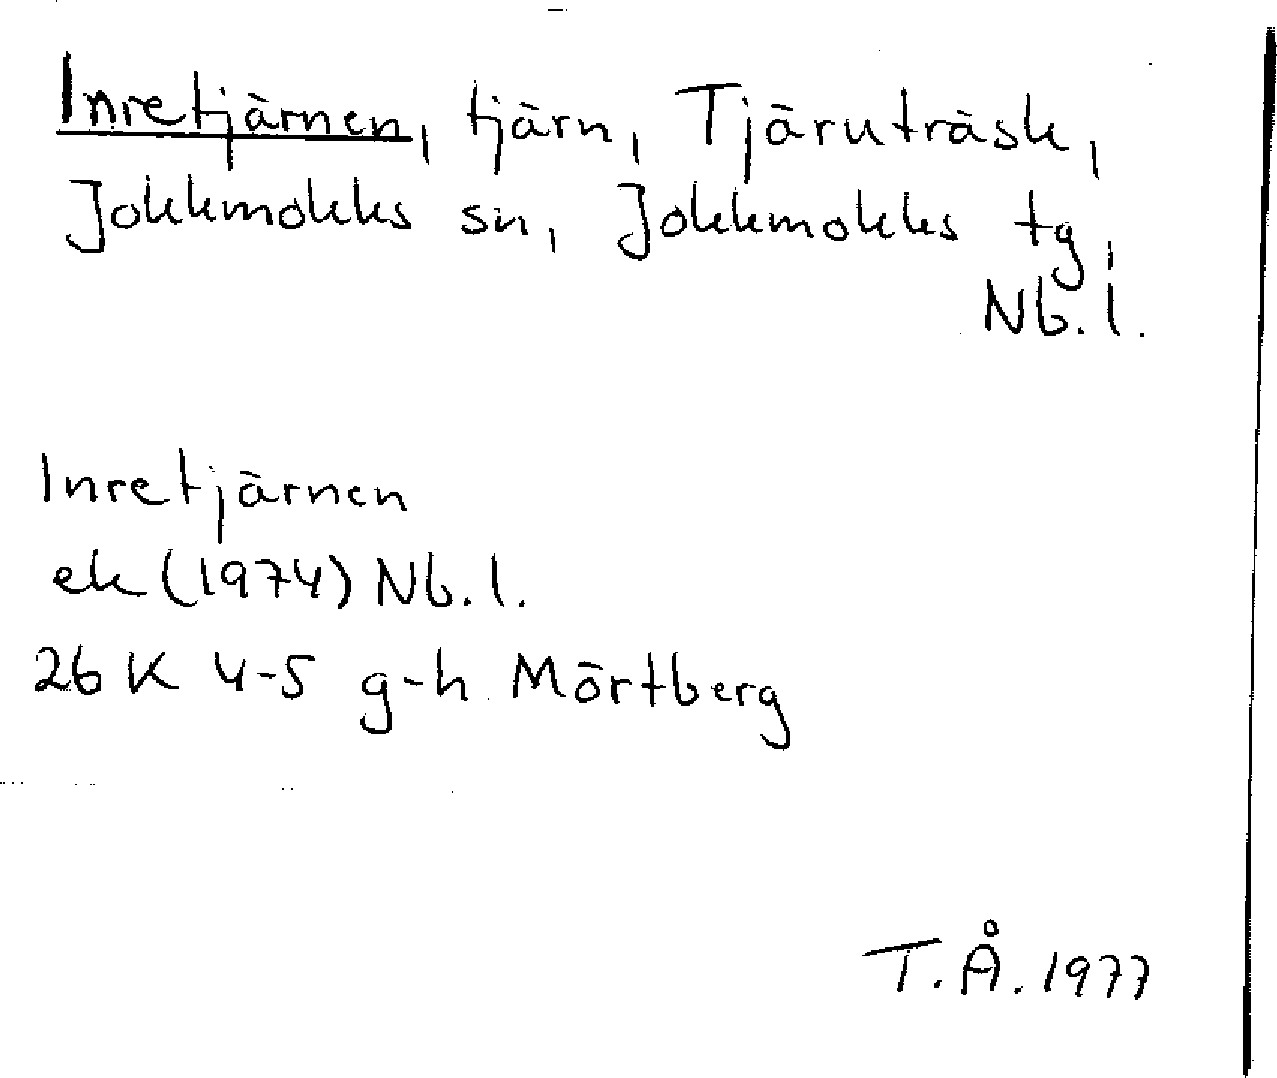 Inretjärnen, tjärn, Tjäruträsk,
Jokkmokks sn, Jokkmokks tg,
Nb. l.
Inretjärnen
ek (1974) Nb. l.
26 K 4-5 g-h Mörtberg
T. Å. 1977